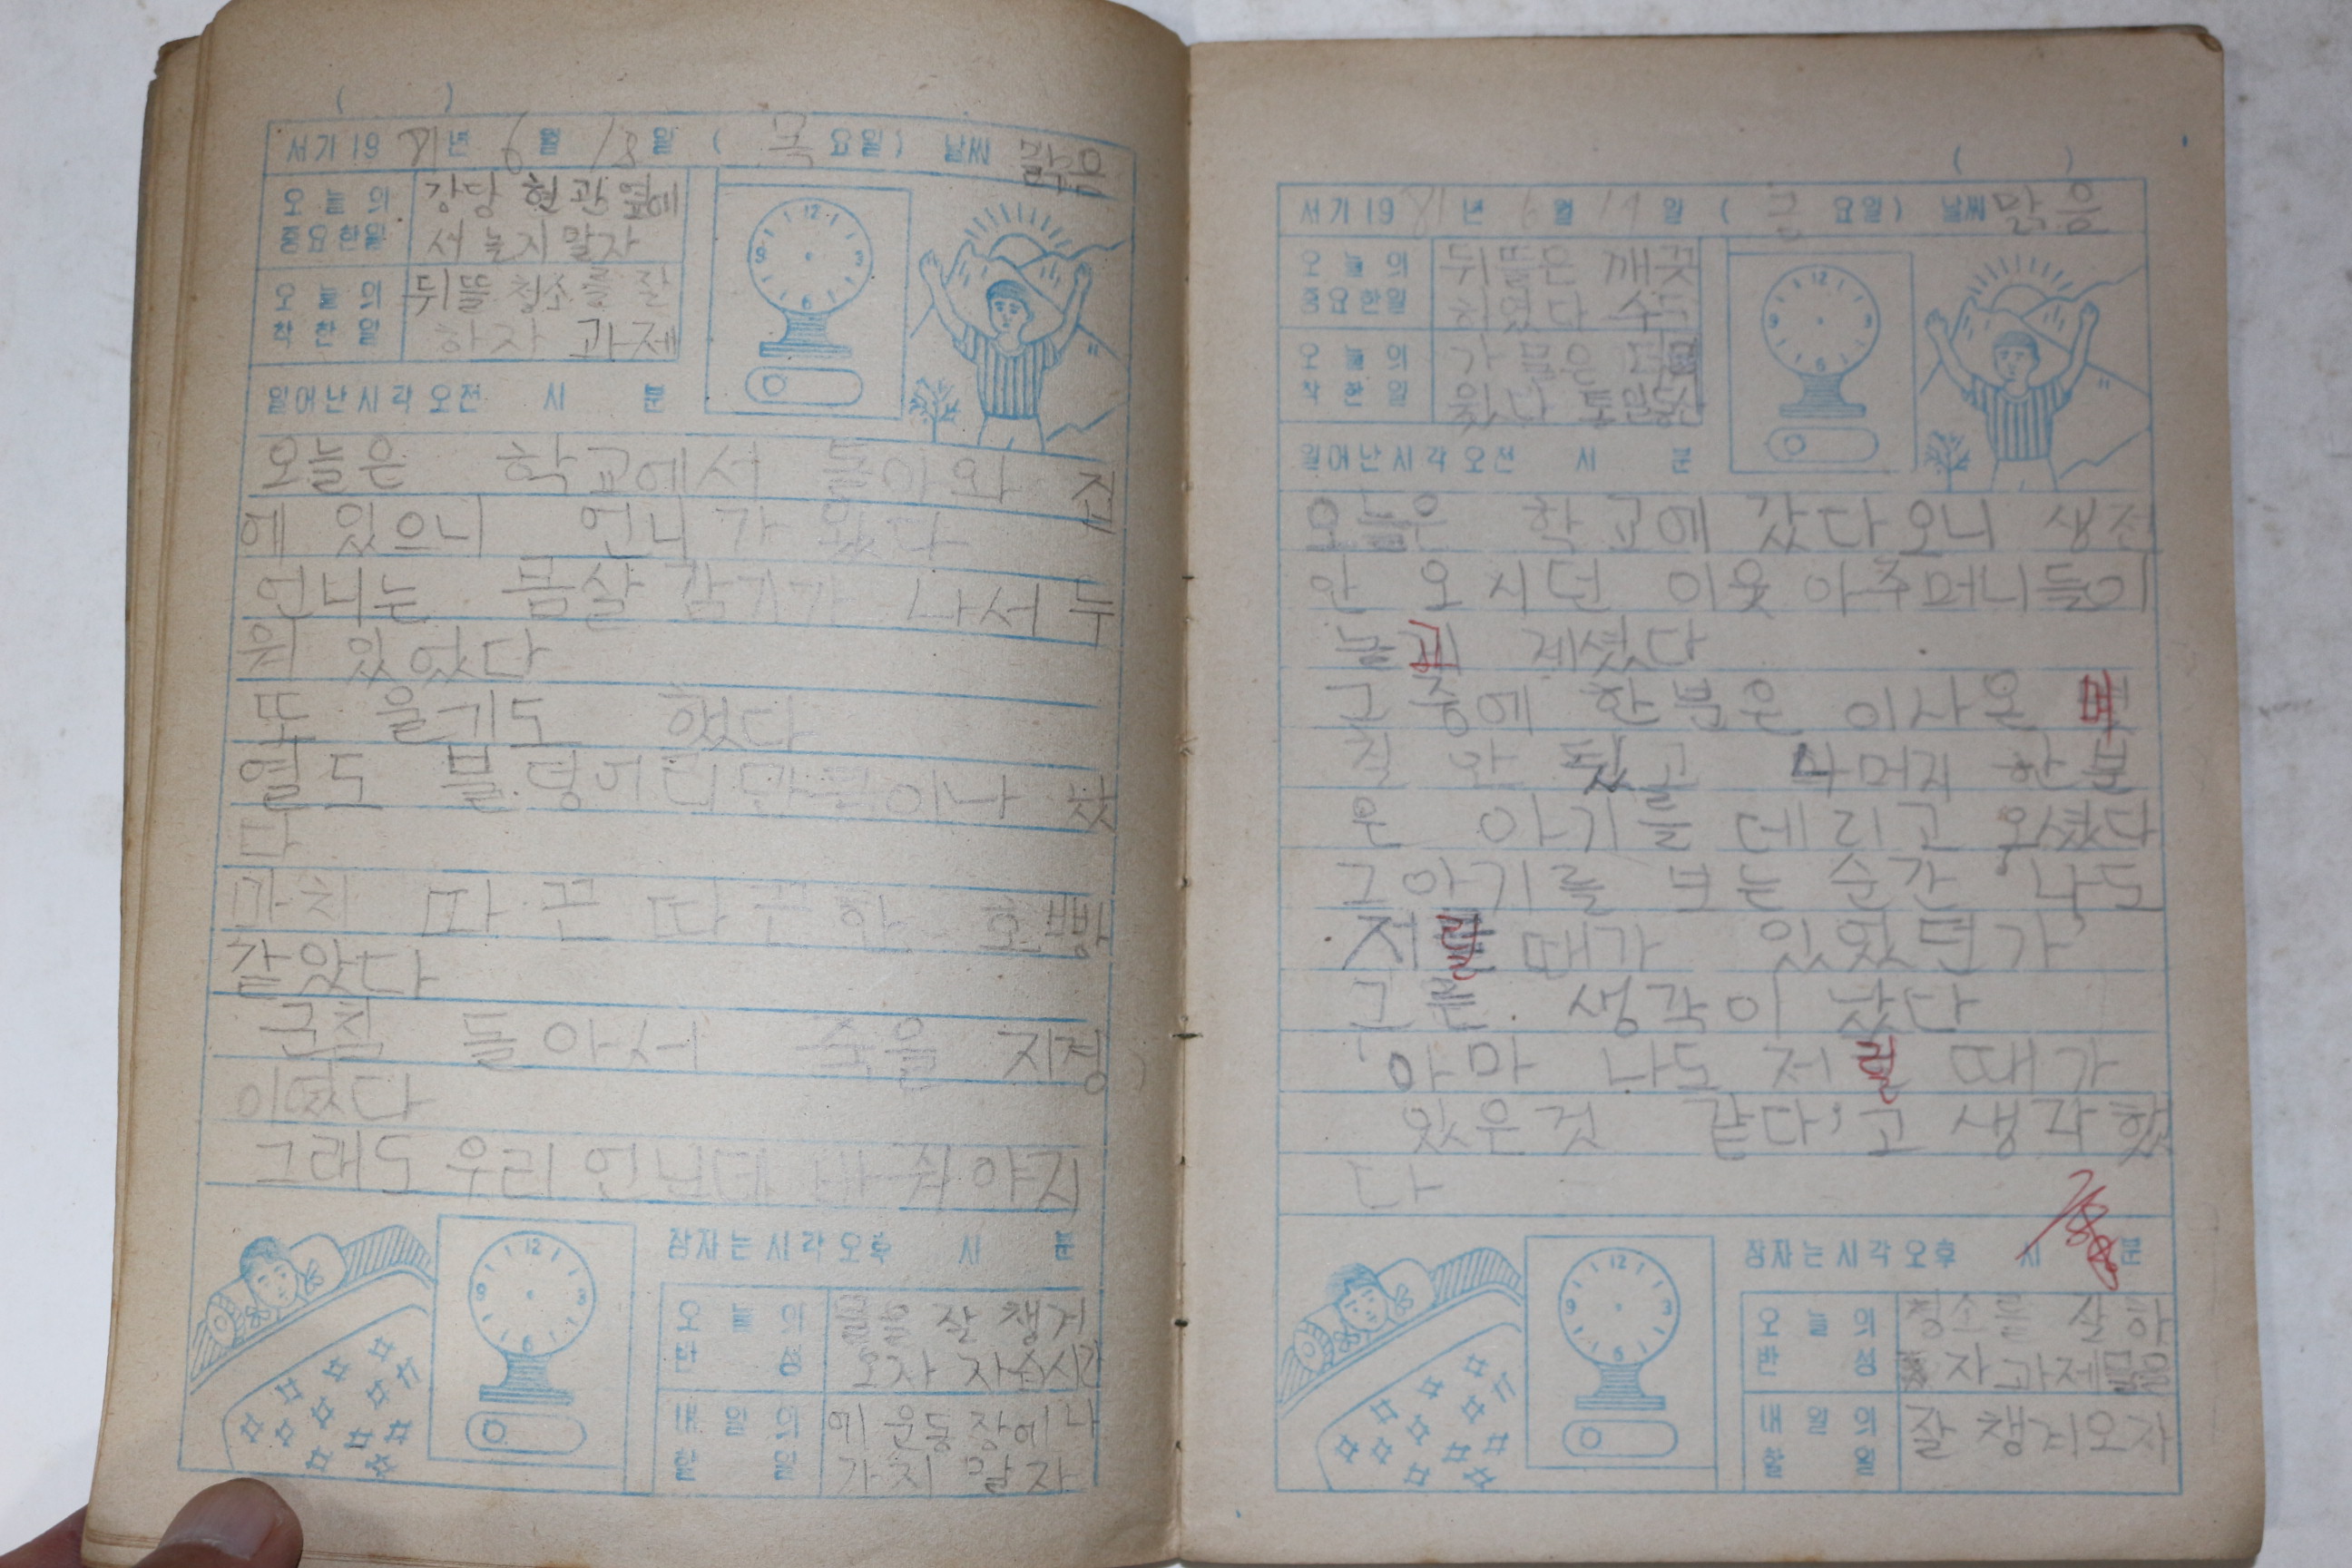 ( )
서기 19 81년 6월 18일 ( 목 요일) 날씨 맑음
오늘의 중요한일
강당 현관 옆에
서 놀지 말자
오늘의 착한일
뒤뜰 청소를 잘
하자 과제
일어난시각 오전 시 분
12 3 6 9
오늘은 학교에서 돌아와 집
에 있으니 언니가 왔다
언니는 몸살 감기가 나서 누
워 있었다
또 울기도 했다
열도 불덩어리만큼이나 났
다
마치 따끈따끈한 호빵
같았다
근침 돌아서 죽을 지경
이였다
그래도 우리 언닌데 봐줘야지
12 3 6 9
잠자는시각 오후 시 분
오늘의 반성
물을 잘 챙겨
오자 자습시간
내일의 할일
에 운동장에 나
가지 말자
( )
서기 19 81년 6월 19일 ( 금 요일) 날씨 맑음
오늘의 중요한일
뒤뜰은 깨끗
하였다 수도
오늘의 착한일
가 물은
통일동산
일어난시각 오전 시 분
12 3 6 9
오늘은 학교에 갔다오니 생전
안 오시던 이웃 아주머니들이
놀고 계셨다
그 중에 한분은 이사온 며
칠 안 됬고 나머지 한분
은 아기를 데리고 오셨다
그 아기를 보는 순간 '나도
저럴 때가 있었던가'
그런 생각이 났다
'아마 나도 저럴 때가
있은것 같다'고 생각했
다
12 3 6 9
잠자는시각 오후 시 분
오늘의 반성
청소를 잘 하
자 과제물을
내일의 할일
잘 챙겨오자